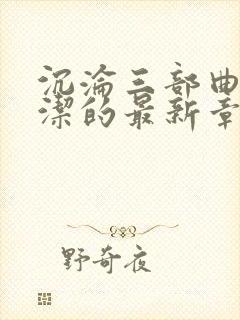 沉淪三部曲
潔的最新章
野奇夜